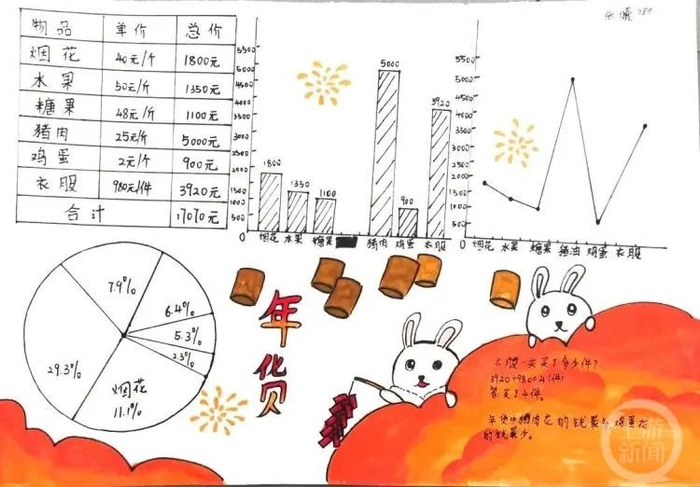 物品 单价 总价
烟花 40元/个 1800元
水果 50元/斤 1350元
糖果 48元/斤 1100元
猪肉 25元/斤 5000元
鸡蛋 2元/个 900元
衣服 980元/件 3920元
合计 17070元
5500
5000
4500
4000
3500
3000
2500
2000
1500
1000
500
0
1800
1350
1100
5000
900
3920
烟花 水果 糖果 猪肉 鸡蛋 衣服
5500
5000
4500
4000
3500
3000
2500
2000
1500
1000
500
0
烟花 水果 糖果 猪油 鸡蛋 衣服
7.9%
6.4%
5.3%
2.3%
29.3%
烟花
11.1%
年货
衣服一共买了多少件?
3920÷980=4(件)
答:买了4件。
年货中猪肉花的钱最多,鸡蛋花
的钱最少。
上游
新闻